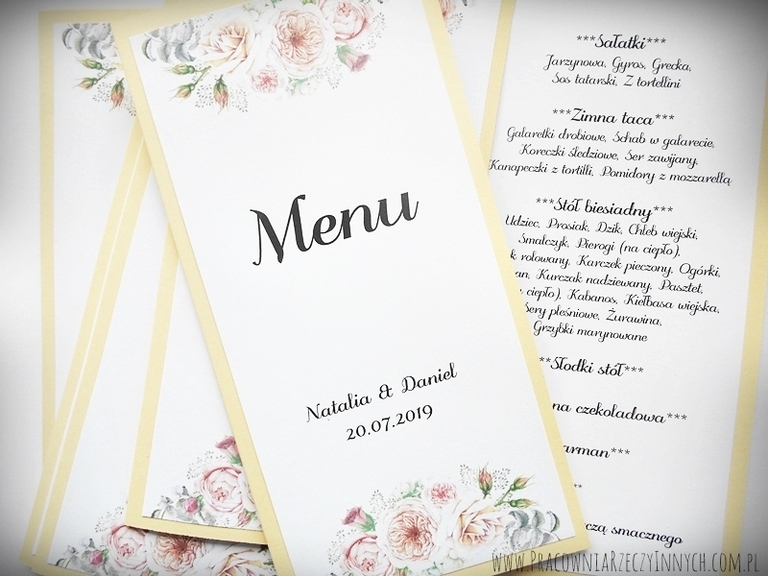 Menu
Natalia & Daniel
20.07.2019
***Sałatki***
Jarzynowa, Gyros, Grecka,
Sos tatarski, Z tortellini
***Zimna taca***
Galaretki drobiowe, Schab w galarecie,
Koreczki śledziowe, Ser zawijany,
Kanapeczki z tortilli, Pomidory z mozzarellą
***Stół biesiadny***
Udziec, Prosiak, Dzik, Chleb wiejski,
Smalczyk, Pierogi (na ciepło),
k rolowany, Karczek pieczony, Ogórki,
an, Kurczak nadziewany, Pasztet,
ciepło), Kabanos, Kiełbasa wiejska,
Sery pleśniowe, Żurawina,
Grzybki marynowane
**Słodki stół***
na czekoladowa***
arman***
***
czą smacznego
www.PracowniaRzeczyInnych.com.pl